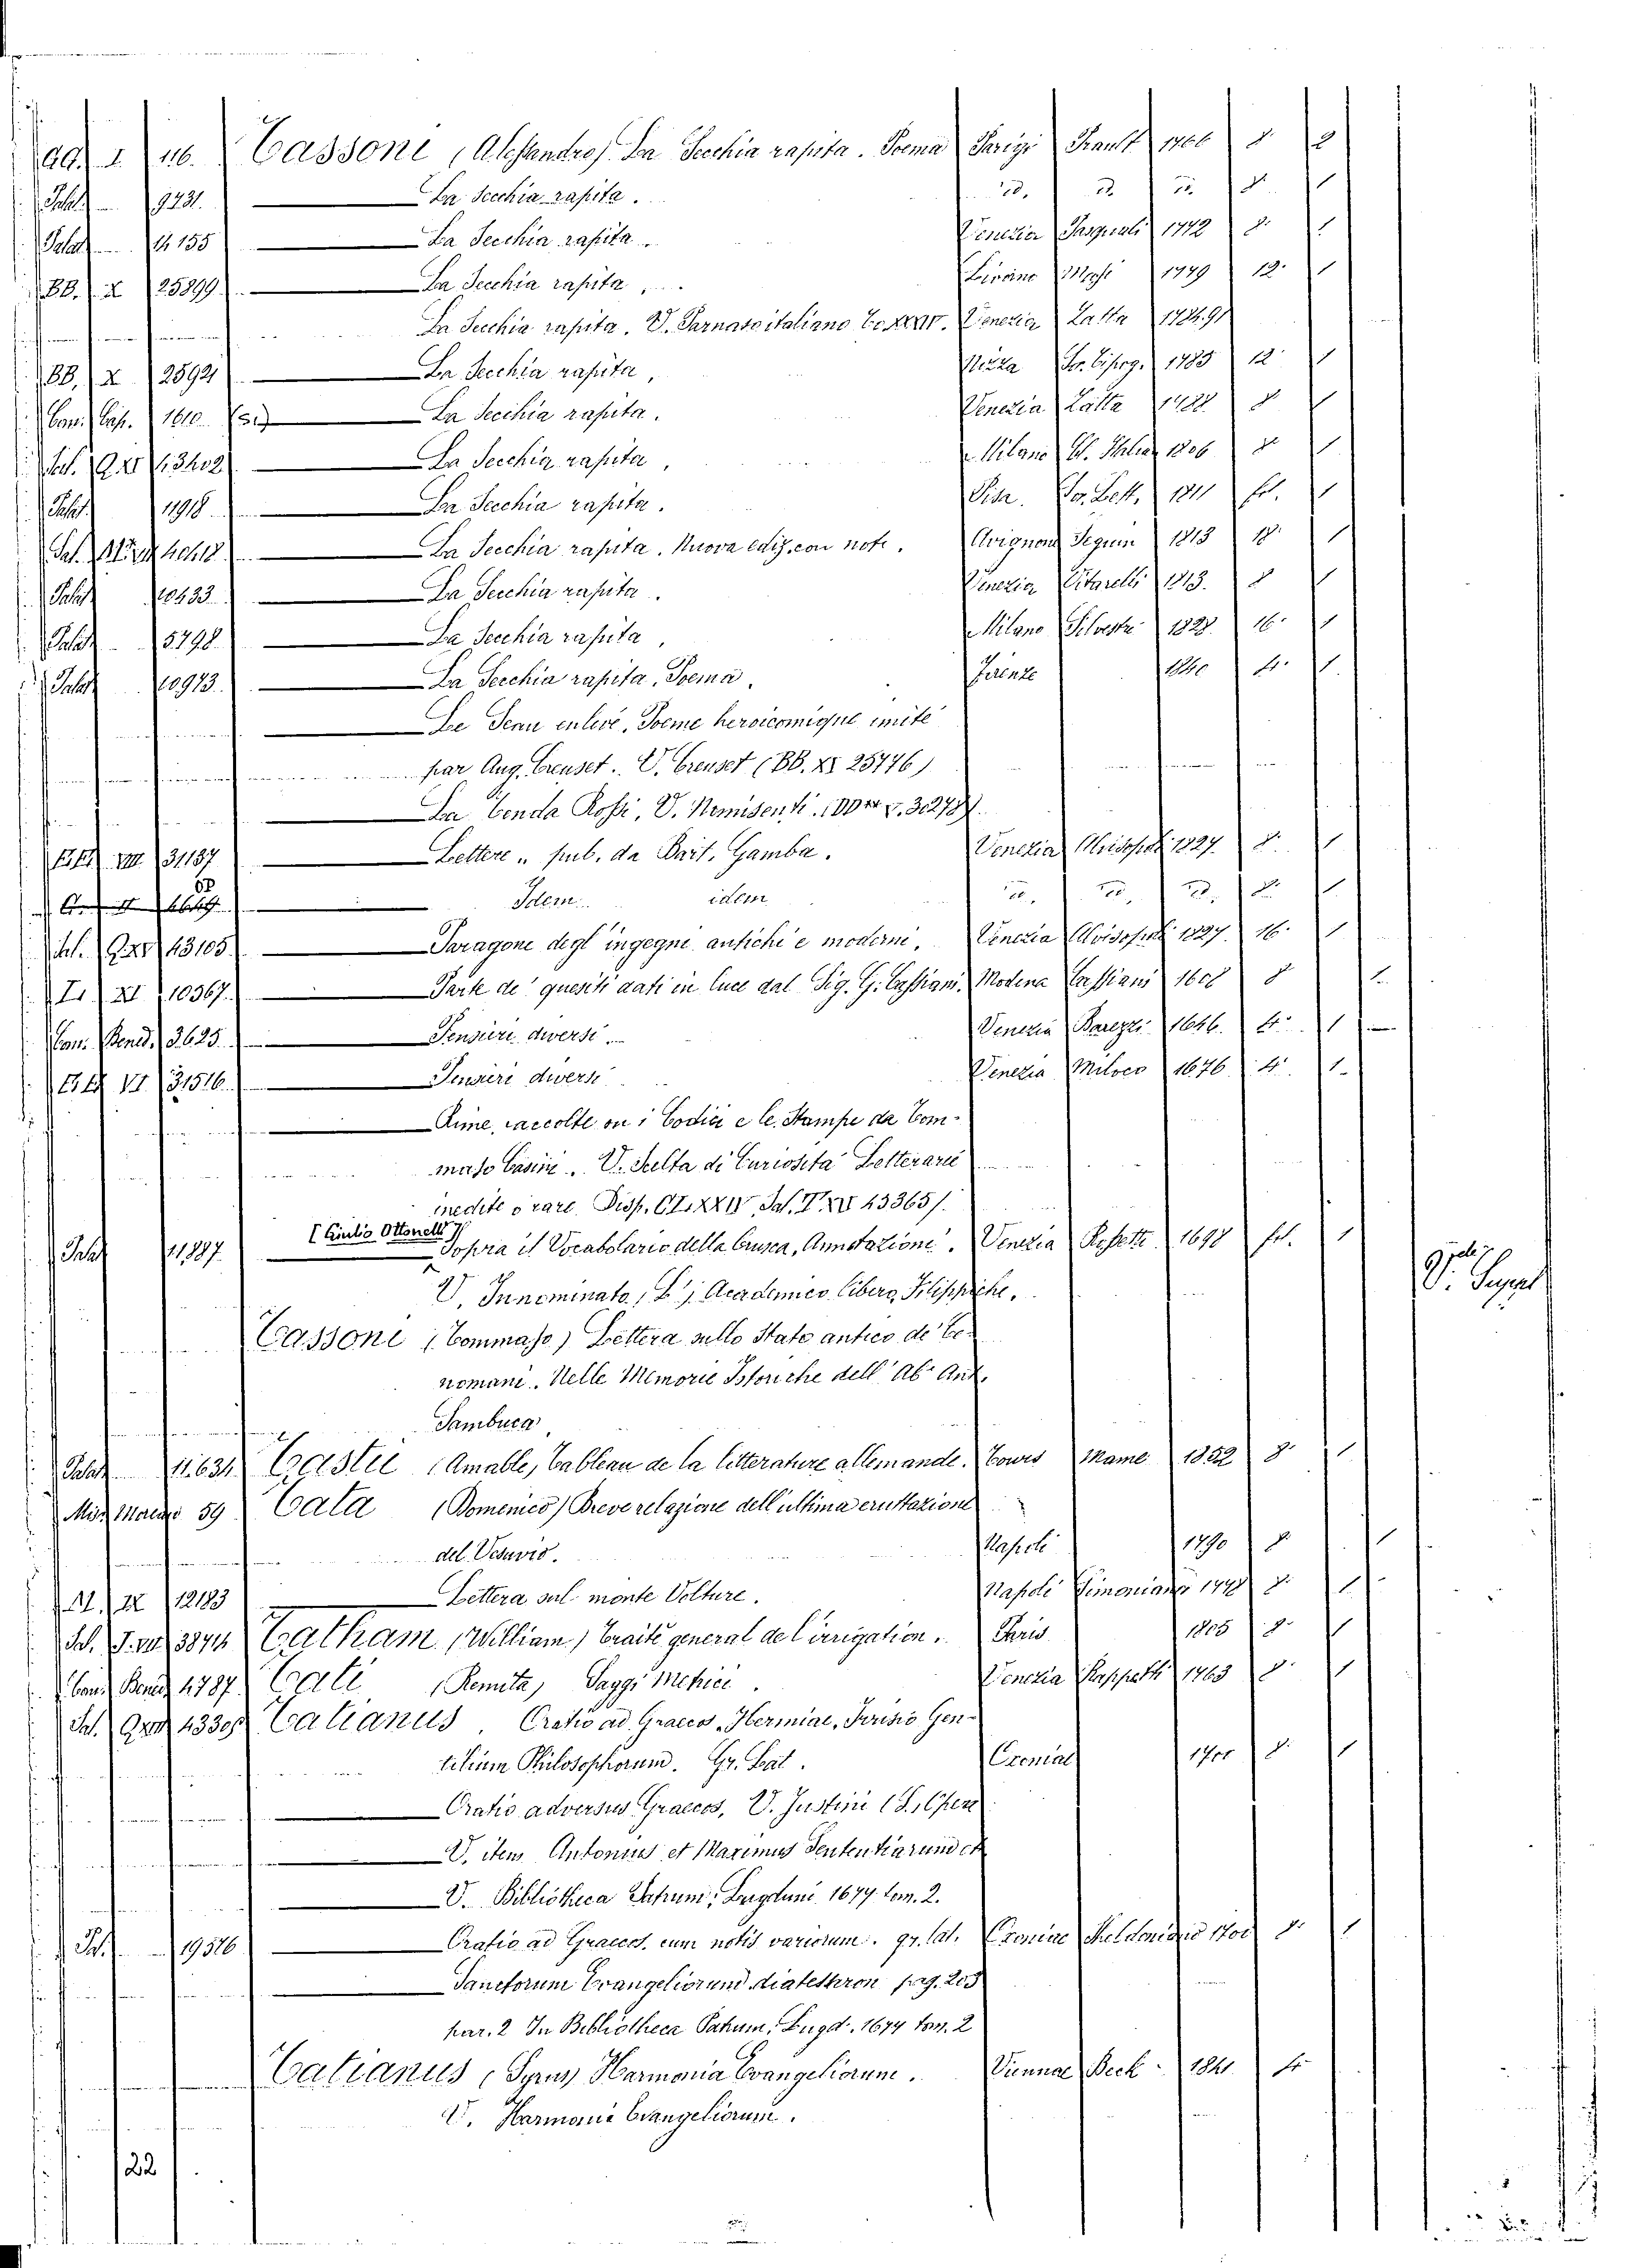 Ad. I 116. Tassoni (Alessandro) La Secchia rapita. Poema Parigi Prault 1766 8 2
Palat. 9431. La Secchia rapita. id. id. id. 8 1
Palat. 14155 La Secchia rapita. Venezia Pasquali 1772 8. 1
BB. X 25899 La Secchia rapita. Livorno Masi 1779 12. 1
La Secchia rapita. V. Parnaso italiano To. XXXV. Venezia Zatta 1784.91
BB. X 25921 La Secchia rapita, Nizza So. Tipog. 1785 12 1
Con. Cap. 1610 (5.) La Secchia rapita. Venezia Zatta 1788 8 1
La Secchia rapita, Milano Cl. Italia 1806 8 1
Palat. 11918 La Secchia rapita. Pisa. So. Lett. 1811 fol. 1
La Secchia rapita. Nuova ediz. con note. Avignon Seguin 1813 18. 1
Palat 10433 La Secchia rapita. Venezia Vitarelli 1813. 8 1
Palat 5798 La Secchia rapita, Milano Silvestri 1828. 16. 1
Palat 10973. La Secchia rapita, Poema. Firenze 1840 4. 1
Le Seau enlevé, Poeme heroicomique imité
par Aug. Creuset. V. Creuset (BB. XI 25776)
La Tenda Rossi, V. Nemisenti.
VIII 31187 Lettere .. pub. da Bart. Gamba. Venezia Alvisopoli 1827. 8. 1
Idem idem id. id. id. 8. 1
43105 Paragone degl' ingegni antichi e moderni, Venezia Alvisopoli 1827. 16. 1
XI 10367. Parte de' quesiti dati in luce dal Sig. G. Cassiani. Modena Cassiani 1608 8 1.
Con. Bened. 3625 Pensieri diversi. Venezia Barezzi 1646. 4. 1
VI 31516. Pensieri diversi Venezia Miloco 1676 4. 1.
Rime, raccolte su i Codici e le Stampe da Tom-
maso Casini. V. Scelta di Curiosità Letterarie
inedite o rare. Disp. 43365).
[Giulio Ottonelli]
Palat 11,887. Sopra il Vocabolario della Crusca, Annotazioni. Venezia Rosetti 1698 fol. 1
V. Innominato, L'; Academico libero, Filippiche.
Tassoni (Tommaso) Lettera sullo Stato antico de' Ce-
nomani. Nelle Memorie Istoriche dell' Ab. Ant.
Sambuca
Palat 11.631 Tastu (Amable) Tableau de la litterature allemande. Tours Mame 1852 8. 1
59 Tata (Domenico) Breve relazione dell' ultima eruttazione
del Vesuvio. Napoli 1790 8. 1
12183 Lettera sul monte Volture. Napoli Simoniana 1778 8. 1
3874 Tatham (William) Traité general de l'irrigation. Paris 1805 8. 1
Con. Bened. 4787. Tati (Remita) Saggi Metrici. Venezia 1763 8. 1
43308 Tatianus. Oratio ad Graecos, Hermiae, Irrisio Gen-
tilium Philosophorum. Gr. Lat. Oxoniae 1700 8. 1
Oratio adversus Graecos, V. Justini (S.) Opera
V. item Antonius et Maximus Sententiarum et
V. Bibliotheca Patrum, Lugduni 1677 tom. 2.
Pal. 19516 Oratio ad Graecos, cum notis variorum. gr. lat. Oxoniae Sheldoniano 1700 8. 1
Sanctorum Evangeliorum diatesseron pag. 203
par. 2 In Bibliotheca Patrum, Lugd. 1677 tom. 2
Tatianus (Syrus) Harmonia Evangeliorum. Viennae Beck 1841 4.
V. Harmonia Evangeliorum.
22